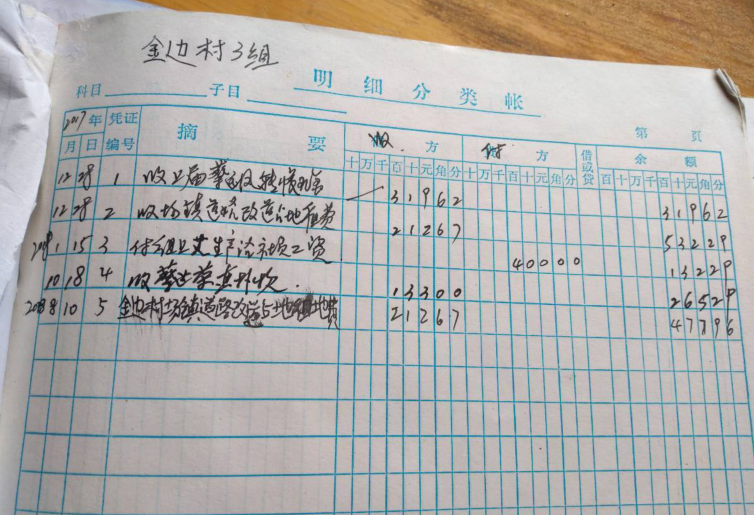 金边村3组
明细分类帐
科目 子目
第 页
2017年 凭证 摘要 收方 付方 借或贷 余额
月 日 编号 十万千百十元角分 十万千百十元角分 百十万千百十元角分
12 28 1 收上届 31962 31962
12 28 2 收场镇道路改造占地租费 21267 53229
2018 1 15 3 付组上 生产 工资 40000 13229
10 18 4 收 13300 26529
8 10 5 金边村场镇道路改造占地 21267 47796